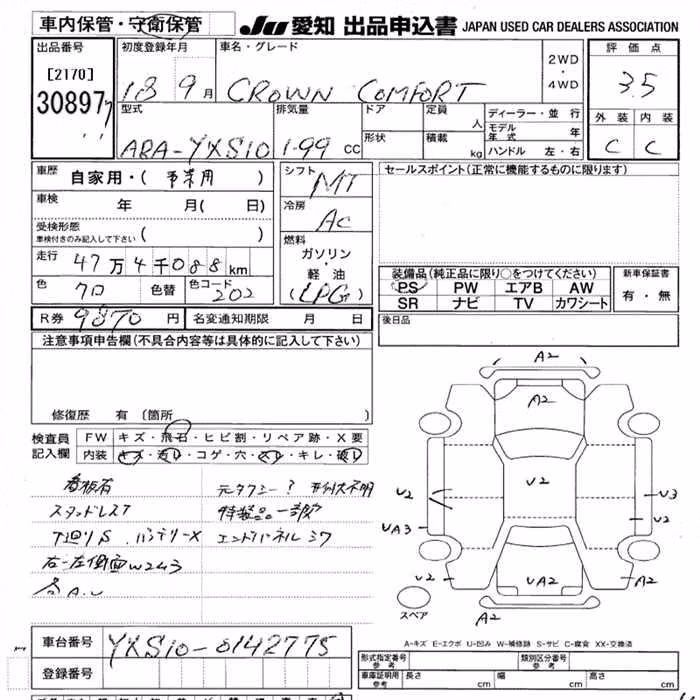 車内保管・守衛保管
JU 愛知 出品申込書 JAPAN USED CAR DEALERS ASSOCIATION
出品番号 初度登録年月 車名・グレード 評価点
[2170] 18 9月 CROWN COMFORT 2WD・4WD 3.5
30897
型式 排気量 ドア 定員 人 ディーラー・並行 外装 内装
形状 積載 kg モデル年式 年
ABA-YXS10 1.99 cc ハンドル 左・右 C C
車歴 自家用・( 事業用 ) シフト MT セールスポイント(正常に機能するものに限ります)
車検 年 月( 日) 冷房 AC
受検形態
車検付きのみ記入して下さい ( ) 燃料
走行 47万4千088km ガソリン・軽油 装備品(純正品に限り○をつけてください) 新車保証書
色 クロ 色替 色コード 202 (LPG) PS PW エアB AW 有・無
SR ナビ TV カワシート
R券 9870円 名変通知期限 月 日 後日品
注意事項申告欄(不具合内容等は具体的に記入して下さい)
A2
A2
修復歴 有 〔箇所
検査員 FW キズ・飛石・ヒビ割・リペア跡・X要
記入欄 内装 キズ・汚レ・コゲ・穴・スレ・キレ・破レ
看板有 元タクシー? 形状不明
スタッドレスT 特装品一部欠
T廻りS バッテリーX エンドパネルシワ
右-左側面W2 3
A.U
U2
U2 U3
UA3 U2
U2 UA2 A2
スペア A2
A-キズ E-エクボ U-凹み W-補修跡 S-サビ C-腐食 XX-交換済
車台番号 YXS10-0142775
登録番号
形式指定番号 参考 類別区分番号 参考
車庫証明用 参考 長さ cm 幅 cm 高さ cm